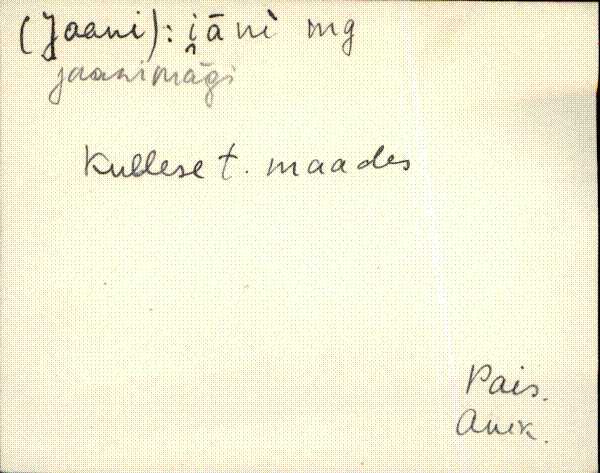 (Jaani): i̯ānì mg
jaanimägi
Kullese t. maades
Pais.
Anik.